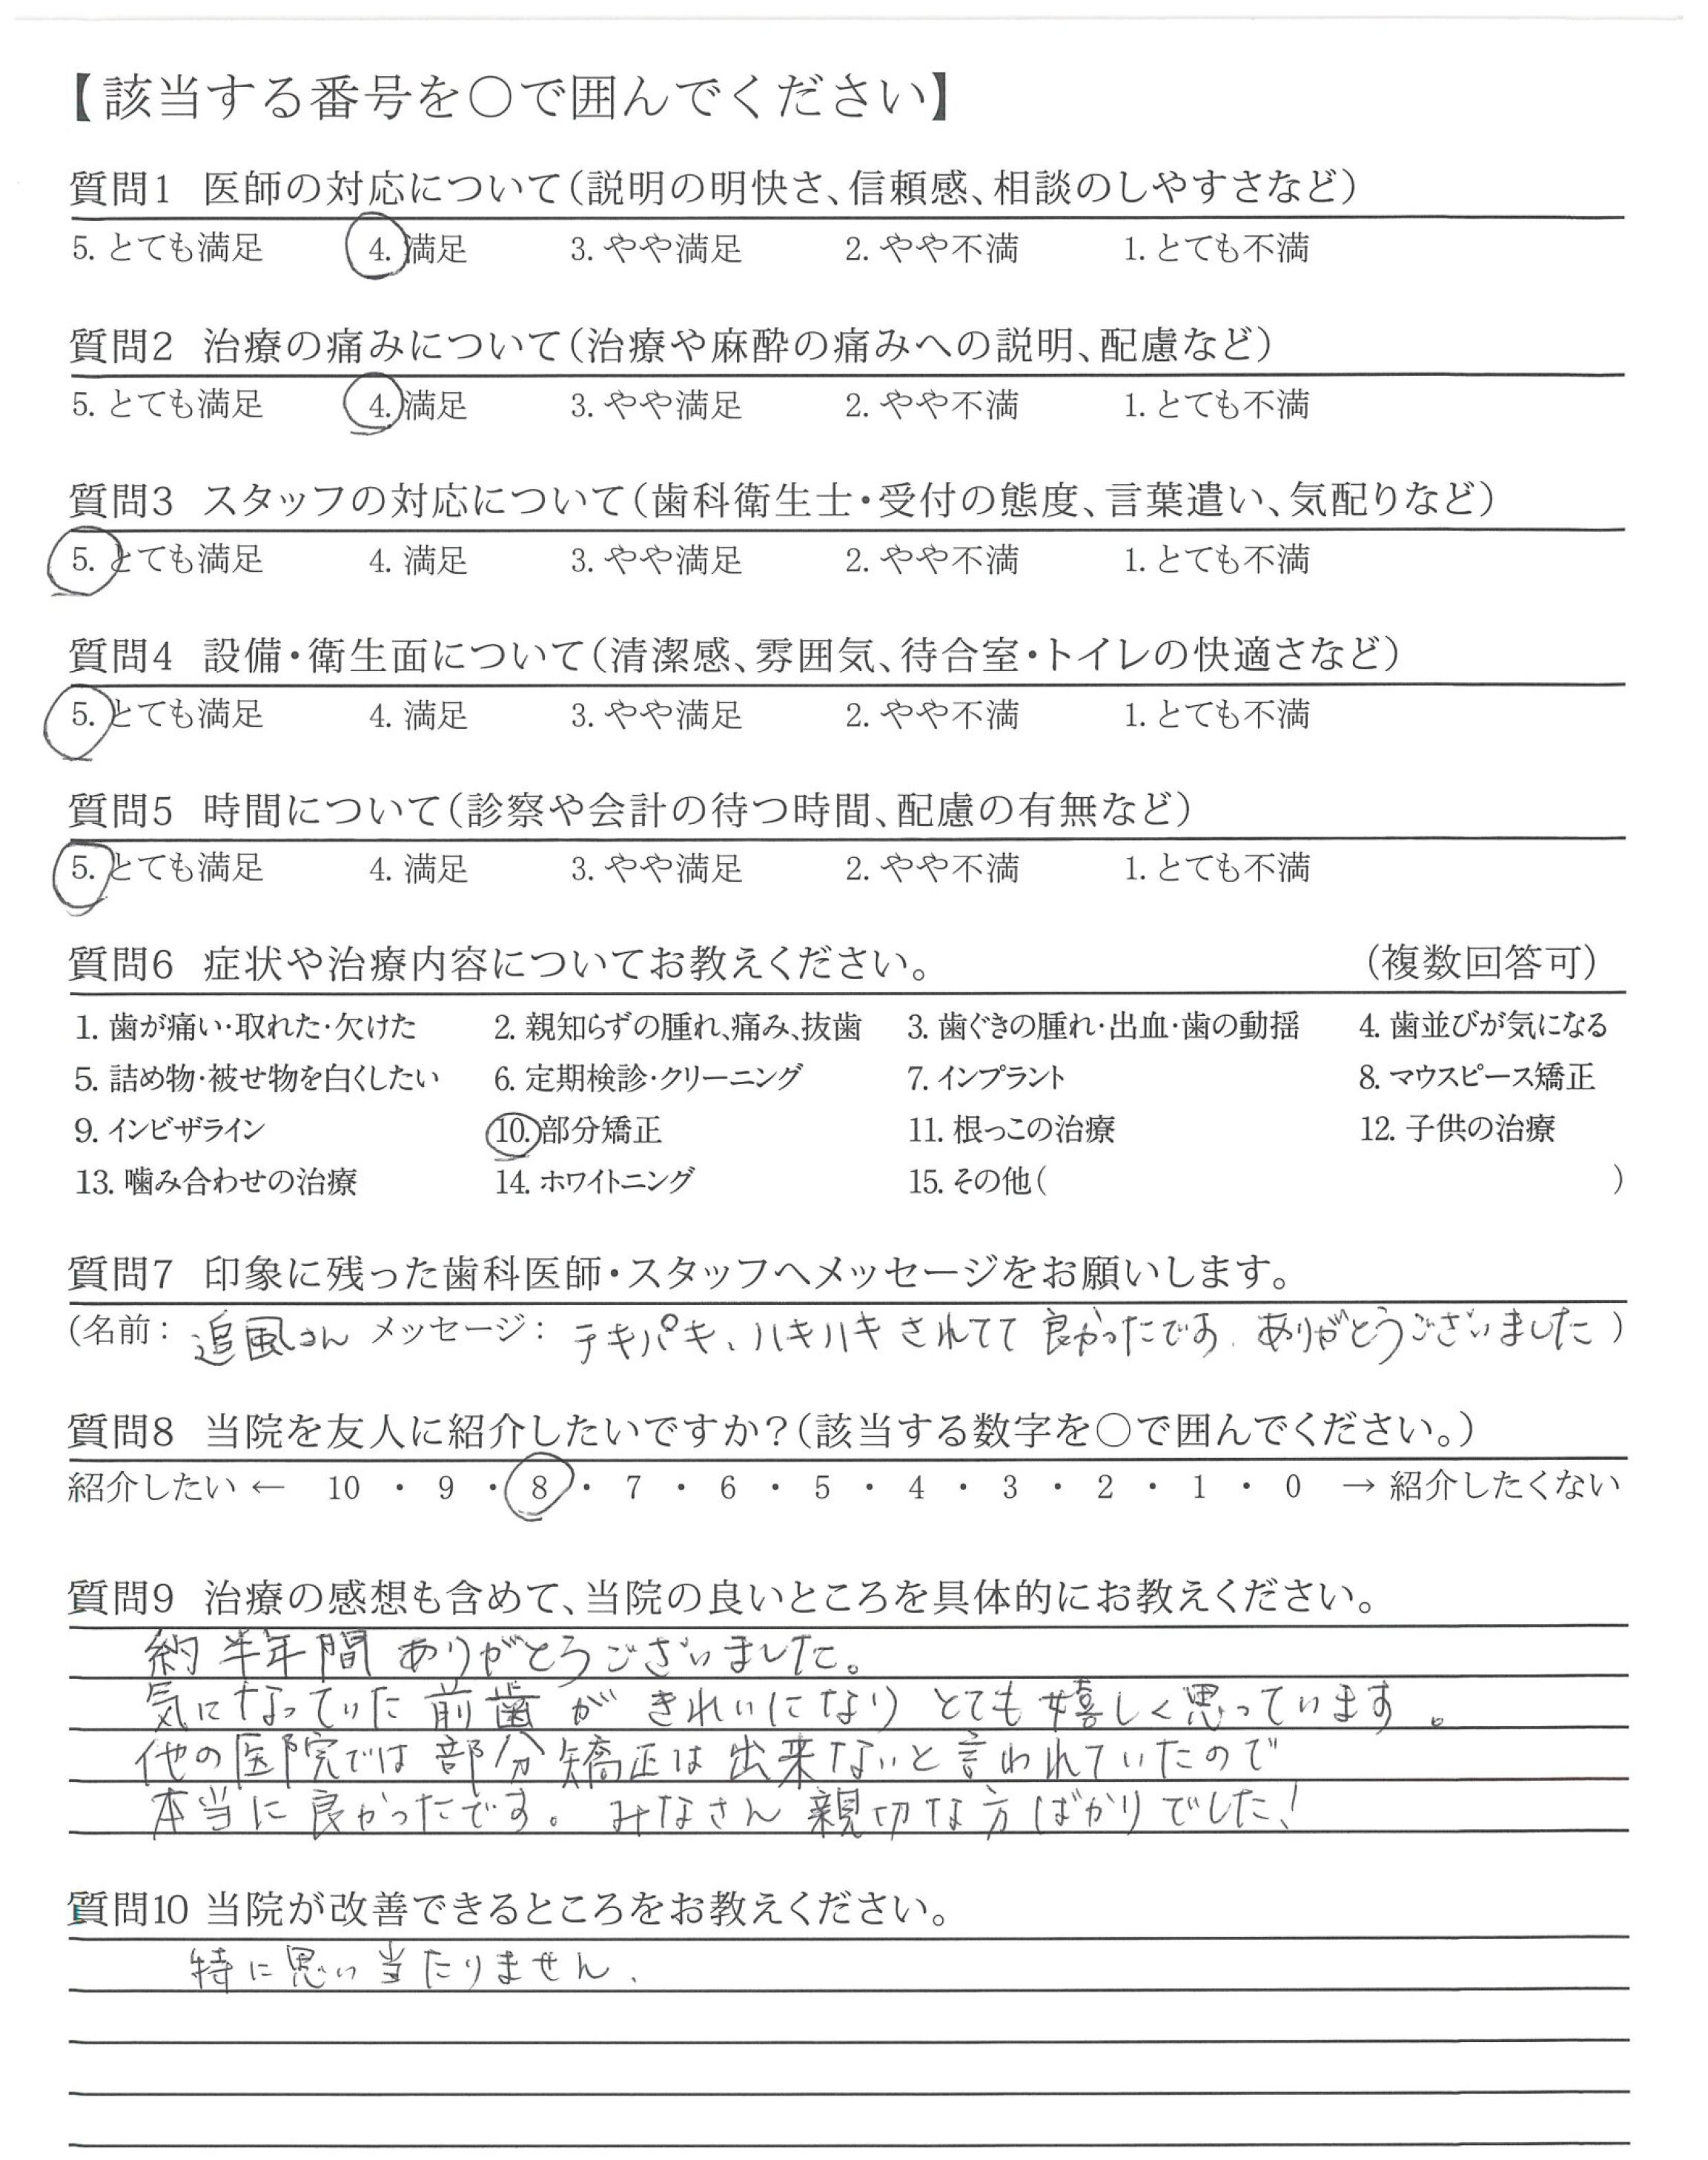 【該当する番号を〇で囲んでください】
質問1 医師の対応について(説明の明快さ、信頼感、相談のしやすさなど)
5. とても満足 4. 満足 3. やや満足 2. やや不満 1. とても不満
質問2 治療の痛みについて(治療や麻酔の痛みへの説明、配慮など)
5. とても満足 4. 満足 3. やや満足 2. やや不満 1. とても不満
質問3 スタッフの対応について(歯科衛生士・受付の態度、言葉遣い、気配りなど)
5. とても満足 4. 満足 3. やや満足 2. やや不満 1. とても不満
質問4 設備・衛生面について(清潔感、雰囲気、待合室・トイレの快適さなど)
5. とても満足 4. 満足 3. やや満足 2. やや不満 1. とても不満
質問5 時間について(診察や会計の待つ時間、配慮の有無など)
5. とても満足 4. 満足 3. やや満足 2. やや不満 1. とても不満
質問6 症状や治療内容についてお教えください。 (複数回答可)
1. 歯が痛い・取れた・欠けた 2. 親知らずの腫れ、痛み、抜歯 3. 歯ぐきの腫れ・出血・歯の動揺 4. 歯並びが気になる
5. 詰め物・被せ物を白くしたい 6. 定期検診・クリーニング 7. インプラント 8. マウスピース矯正
9. インビザライン 10. 部分矯正 11. 根っこの治療 12. 子供の治療
13. 噛み合わせの治療 14. ホワイトニング 15. その他( )
質問7 印象に残った歯科医師・スタッフへメッセージをお願いします。
(名前: 追風さん メッセージ: テキパキ、ハキハキされてて 良かったです. ありがとうございました )
質問8 当院を友人に紹介したいですか?(該当する数字を〇で囲んでください。)
紹介したい ← 10 ・ 9 ・ 8 ・ 7 ・ 6 ・ 5 ・ 4 ・ 3 ・ 2 ・ 1 ・ 0 → 紹介したくない
質問9 治療の感想も含めて、当院の良いところを具体的にお教えください。
約半年間 ありがとうございました。
気になっていた 前歯が きれいになり とても嬉しく思っています。
他の医院では 部分矯正は 出来ないと言われていたので
本当に良かったです。 みなさん 親切な方ばかりでした!
質問10 当院が改善できるところをお教えください。
特に思い当たりません.